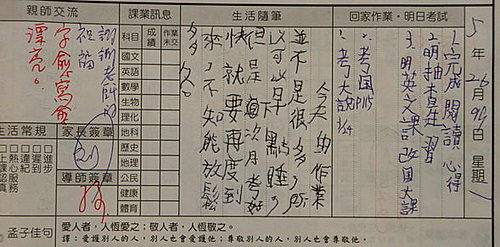 親師交流
課業訊息
生活隨筆
回家作業・明日考試
5年26
星期一
1.完成閱讀心得
2.明抽考是習
3.明英文課改国文課
1.考国P115
2.考大說3/24
今天的作業
並不是很多,所
以可以早點睡,
但是這次月考好
快就要再度到
來,不知能放鬆
多久。
科目
成績
作業未交
國文
英語
數學
生物
理化
地科
歷史
地理
公民
健康
體育
謝謝老師的
祝福
字愈寫愈
漂亮。
生活常規
家長簽章
導師簽章
進步
遲到
違紀
熱心服務
上課認真
孟子佳句
愛人者,人恆愛之;敬人者,人恆敬之。
譯:愛護別人的人,別人也會愛護他;尊敬別人的人,別人也會尊敬他。